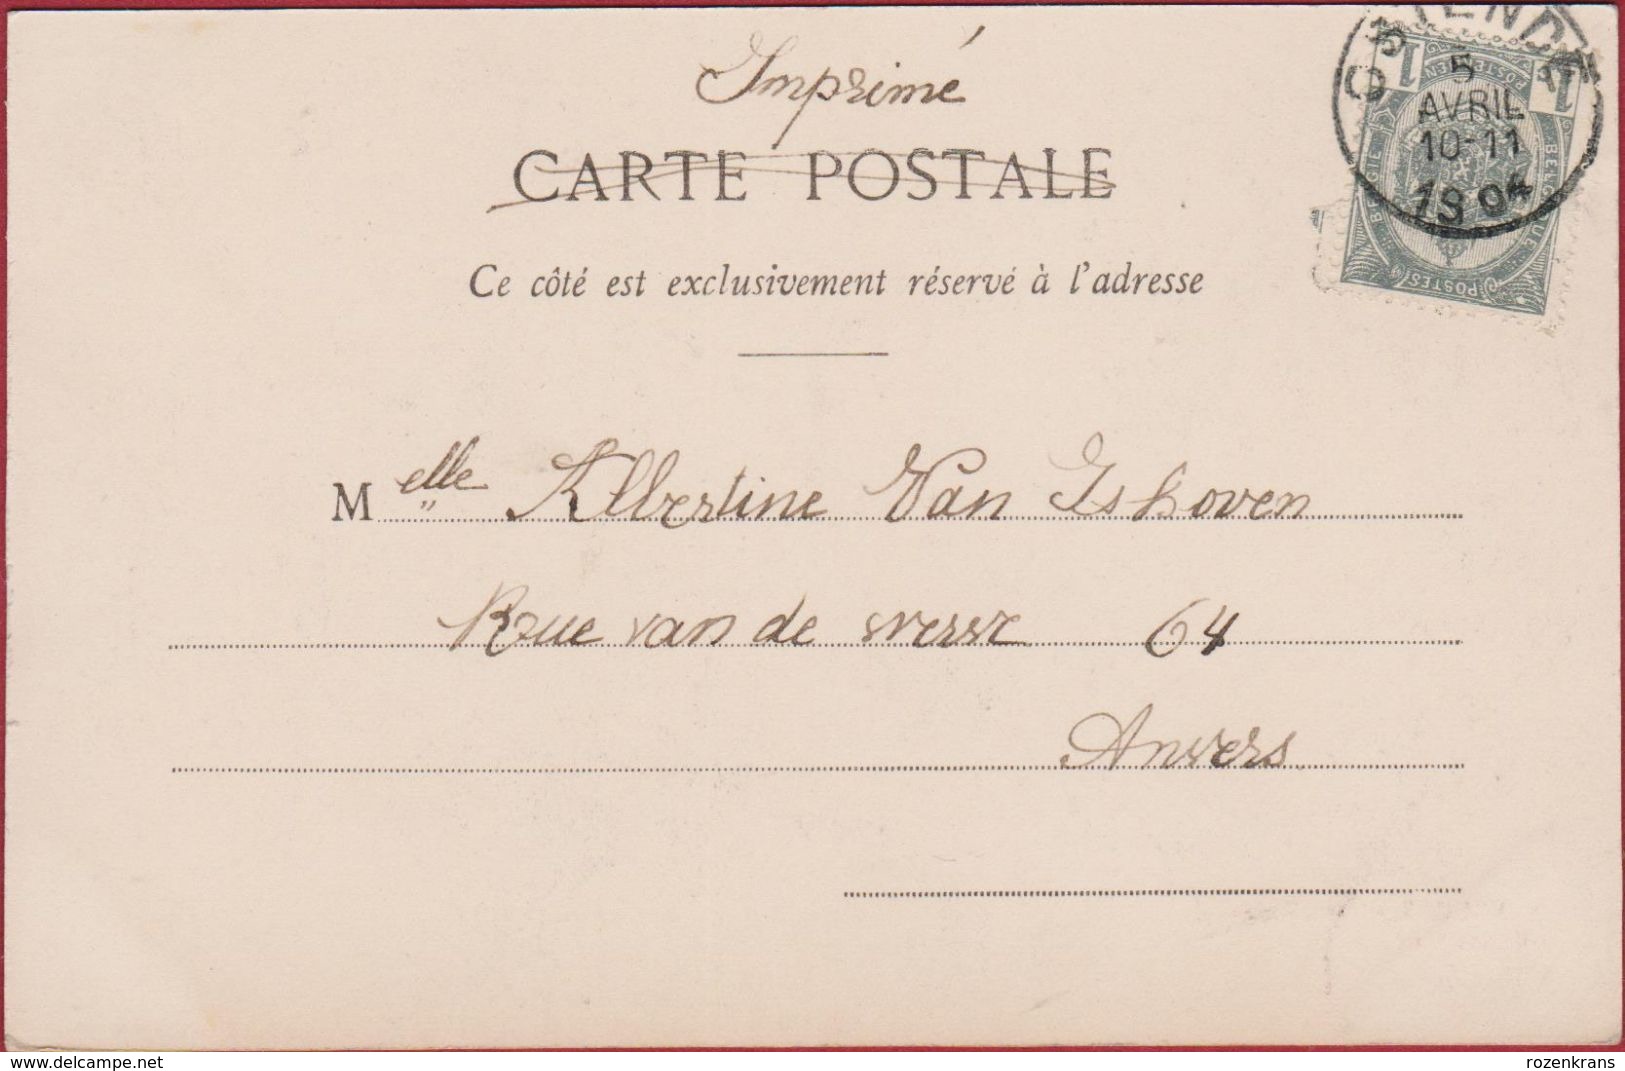 Imprimé
CARTE POSTALE
Ce côté est exclusivement réservé à l'adresse
OSTENDE
5
AVRIL
10-11
1904
1 1
POSTERIJEN
BELGIE BELGIQUE
POSTES
Melle Albertine Van Ishoven
Rue van de werve 64
Anvers
delcampe.net
rozenkrans